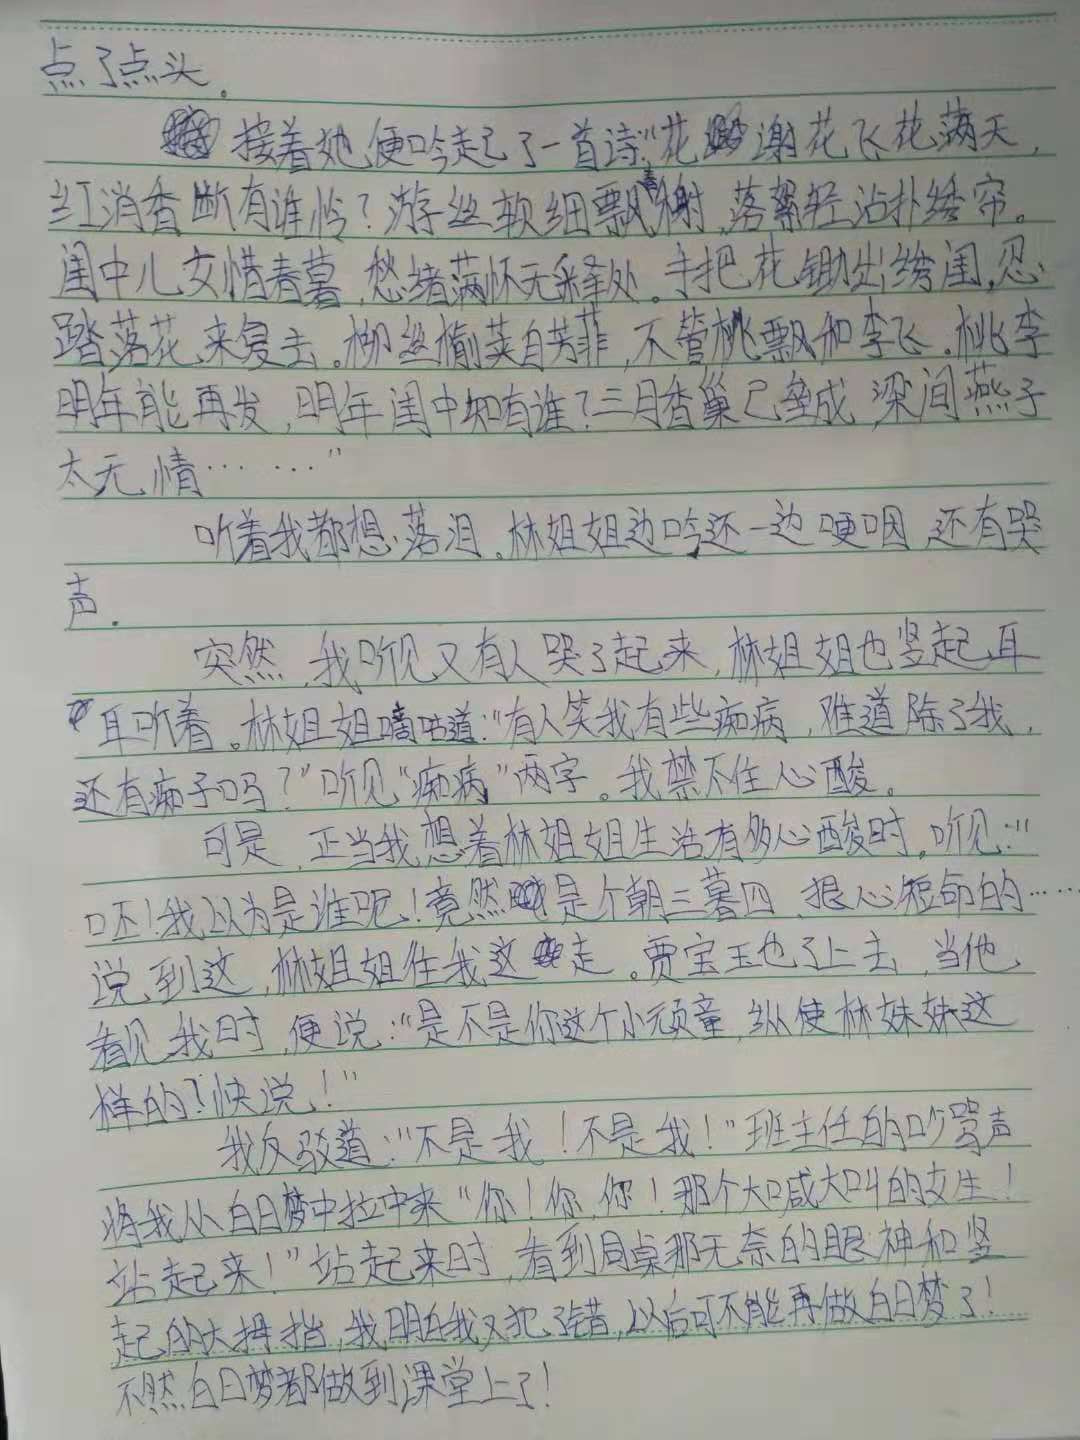 点了点头。
接着她便吟起了一首诗“花谢花飞花满天，
红消香断有谁怜？游丝软细飘春榭，落絮轻沾扑绣帘。
闺中儿女惜春暮，愁绪满怀无释处。手把花锄出绣闺，忍
踏落花来复去。柳丝榆荚自芳菲，不管桃飘和李飞。桃李
明年能再发，明年闺中知有谁？三月香巢已垒成，梁间燕子
太无情……”
听着我都想落泪。林姐姐边吟还一边哽咽，还有哭
声。
突然，我听见又有人哭了起来，林姐姐也竖起耳
耳听着。林姐姐嘀咕道：“有人笑我有些痴病，难道除了我，
还有痴子吗？”听见“痴病”两字。我禁不住心酸。
可是，正当我想着林姐姐生活有多心酸时，听见：“
呸！我以为是谁呢！竟然是个朝三暮四、狠心短命的……
说到这，林姐姐住我这走。贾宝玉也了上去，当他
看见我时，便说：“是不是你这个小顽童，纵使林妹妹这
样的？快说！”
我反驳道：“不是我！不是我！”班主任的吵骂声
将我从白日梦中拉中来“你！你，你！那个大喊大叫的女生！
站起来！”站起来时，看到同桌那无奈的眼神和竖
起的大拇指，我明白我又犯了错，以后可不能再做白日梦了！
不然白日梦都做到课堂上了！